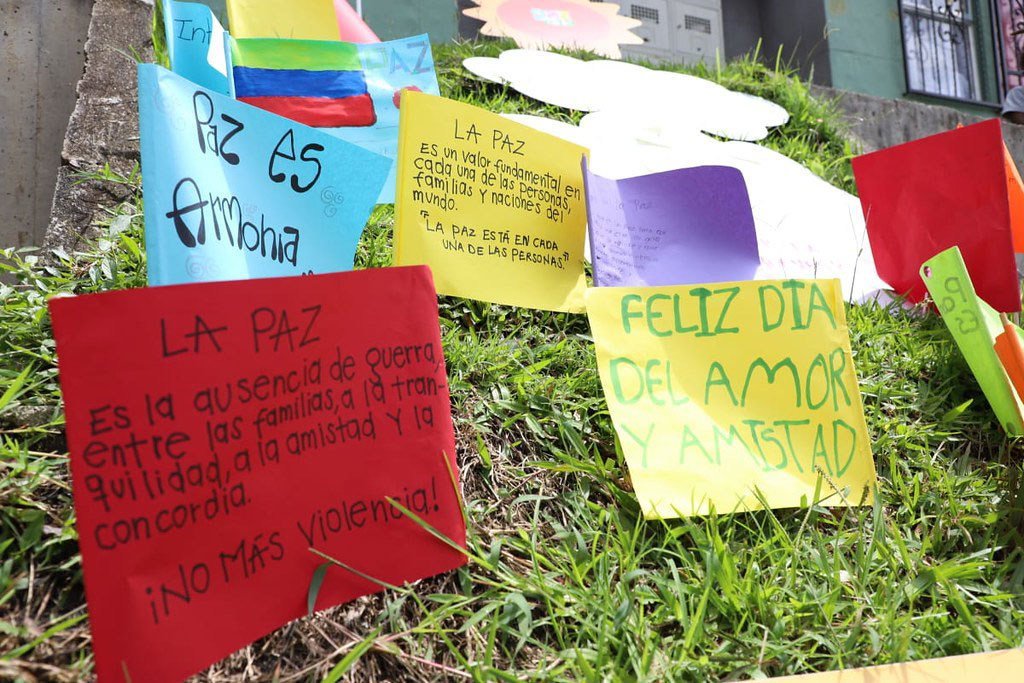 Int
PAZ
Paz es
Armonia
LA PAZ
ES un valor fundamental en
cada una de las personas,
familias y naciones del
mundo.
"LA PAZ ESTÁ EN CADA
UNA DE LAS PERSONAS."
LA PAZ
ES la ausencia de guerra,
entre las familias, a la tran-
quilidad, a la amistad y la
concordia.
¡NO MÁS violencia!
FELIZ DIA
DEL AMOR
Y AMISTAD